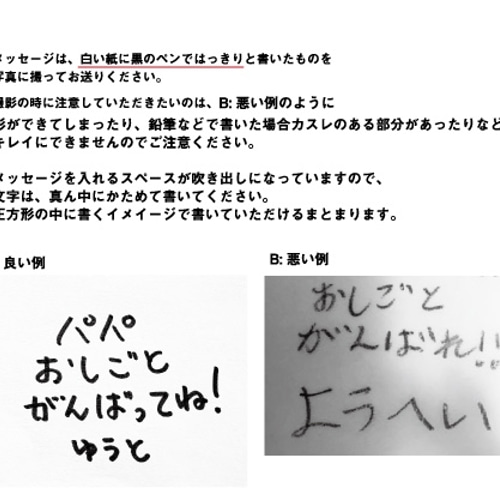 メッセージは、白い紙に黒のペンではっきりと書いたものを
写真に撮ってお送りください。
撮影の時に注意していただきたいのは、B: 悪い例のように
影ができてしまったり、鉛筆などで書いた場合カスレのある部分があったりなど
キレイにできませんのでご注意ください。
メッセージを入れるスペースが吹き出しになっていますので、
文字は、真ん中にかためて書いてください。
正方形の中に書くイメイージで書いていただけるまとまります。
良い例
パパ
おしごと
がんばってね!
ゆうと
B: 悪い例
おしごと
がんばれ!!
ようへい